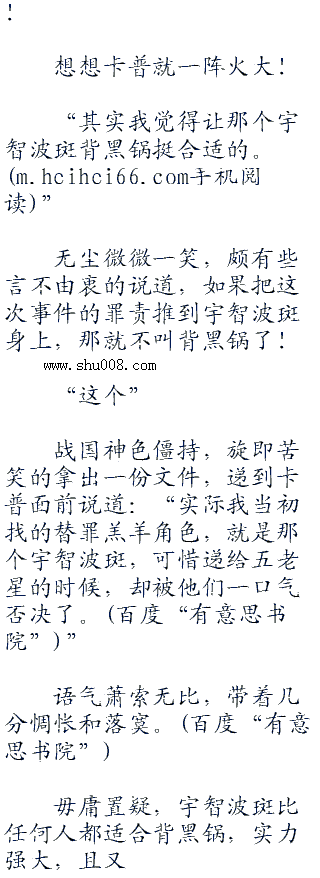 ！
想想卡普就一阵火大！
“其实我觉得让那个宇
智波斑背黑锅挺合适的。
(m.hcihci66.com手机阅
读)”
无尘微微一笑，颇有些
言不由衷的说道，如果把这
次事件的罪责推到宇智波斑
身上，那就不叫背黑锅了！
www.shu008.com
“这个”
战国神色僵持，旋即苦
笑的拿出一份文件，递到卡
普面前说道：“实际我当初
找的替罪羔羊角色，就是那
个宇智波斑，可惜递给五老
星的时候，却被他们一口气
否决了。(百度“有意思书
院”)”
语气萧索无比，带着几
分惆怅和落寞。(百度“有意
思书院”)
毋庸置疑，宇智波斑比
任何人都适合背黑锅，实力
强大，且又